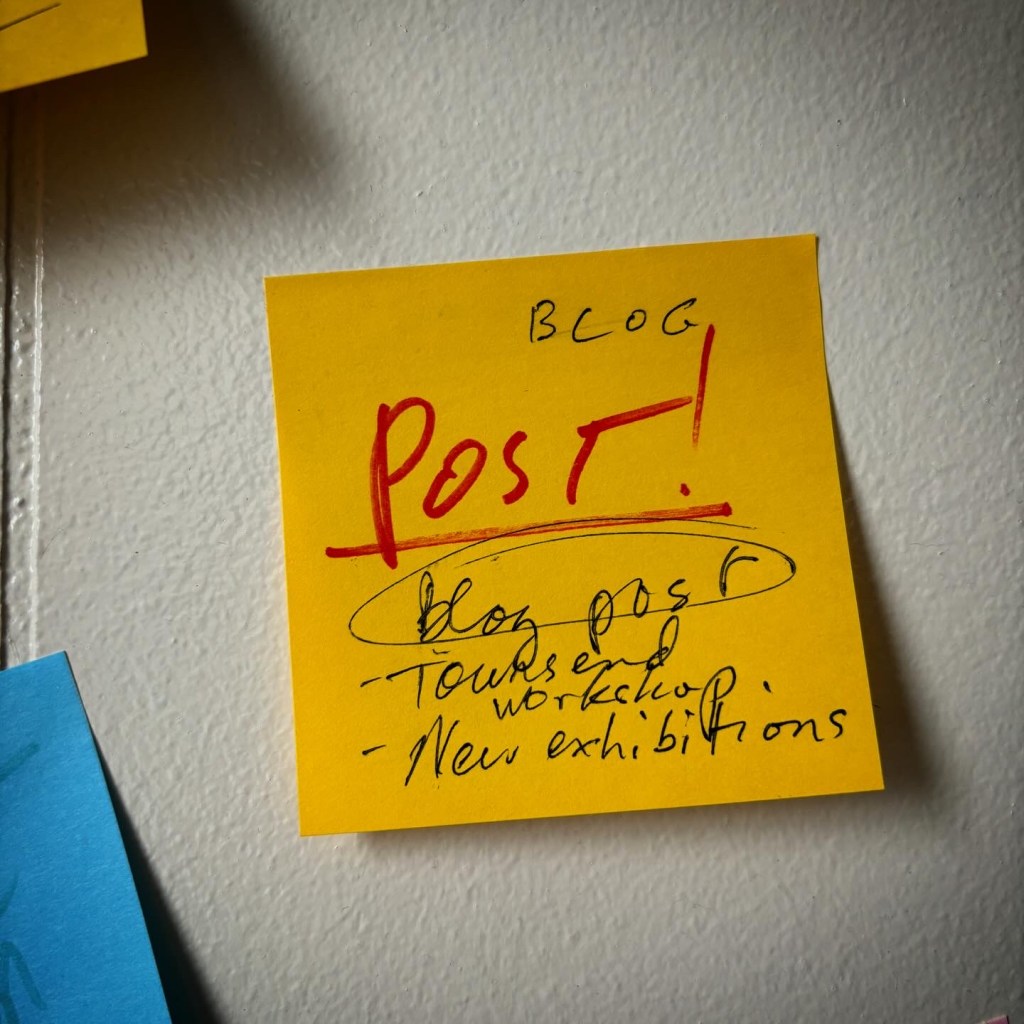 BLOG
Post!
Blog post
- Townsend
workshop.
- New exhibitions